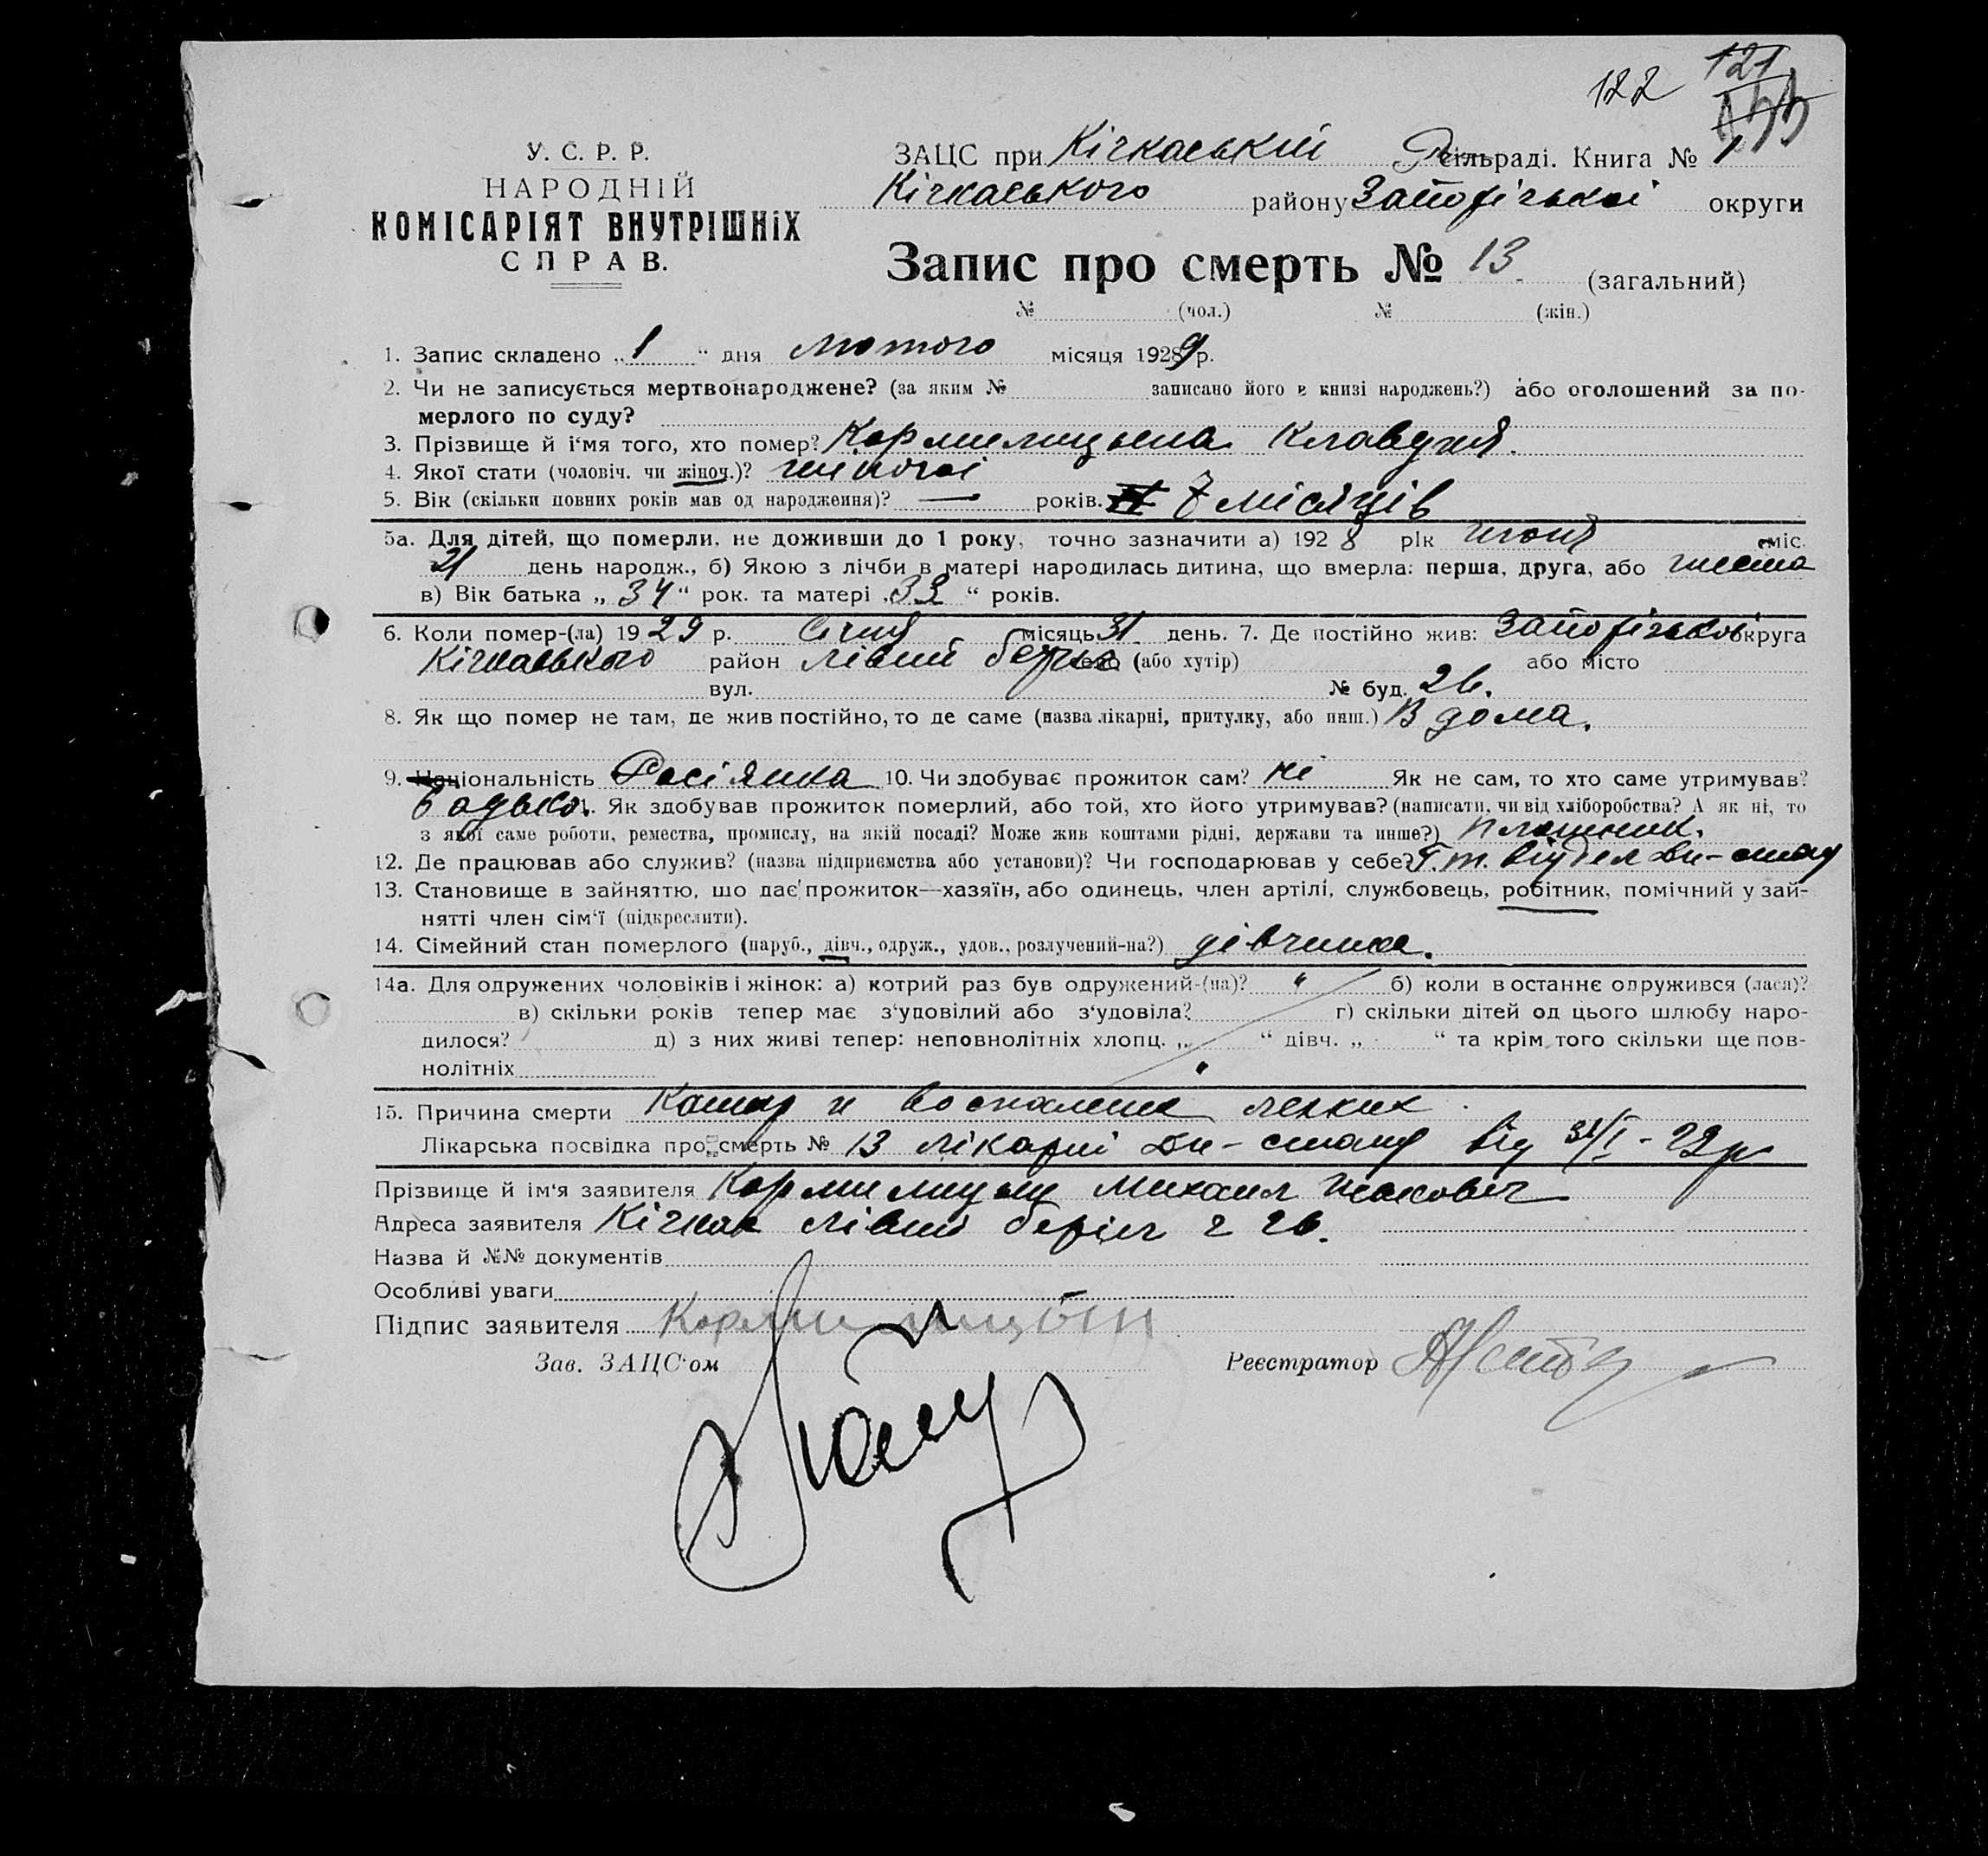 122 121
У. С. Р. Р.
НАРОДНІЙ
КОМІСАРІЯТ ВНУТРІШНІХ
СПРАВ.
ЗАЦС при Кічкаській сільраді. Книга № 1
Кічкаського району Запоріжької округи
Запис про смерть № 13 (загальний)
№ (чол.) № (жін.)
1. Запис складено „1“ дня лютого місяця 1929 р.
2. Чи не записується мертвонароджене? (за яким № записано його в книзі народжень?) або оголошений за по-
мерлого по суду?
3. Прізвище й і'мя того, хто помер? Кормилицьена Клавдия.
4. Якої стати (чоловіч. чи жіноч.)? жіночої
5. Вік (скільки повних років мав од народження)? — років. 7 місяців
5а. Для дітей, що померли, не доживши до 1 року, точно зазначити а) 1928 рік июня міс.
21 день народж., б) Якою з лічби в матері народилась дитина, що вмерла: перша, друга, або шеста
в) Вік батька „34“ рок. та матері „33“ років.
6. Коли помер-(ла) 1929 р. Січня місяць 31 день. 7. Де постійно жив: Запоріжської округа
Кічкаського район лівий берег село (або хутір) або місто
вул. № буд. 26.
8. Як що помер не там, де жив постійно, то де саме (назва лікарні, притулку, або инш.) В дома.
9. Національність Росіянка 10. Чи здобуває прожиток сам? ні Як не сам, то хто саме утримував?
Бадько. Як здобував прожиток померлий, або той, хто його утримував? (написати, чи від хліборобства? А як ні, то
з якої саме роботи, ремества, промислу, на якій посаді? Може жив коштами рідні, держави та инше?) плотник.
12. Де працював або служив? (назва підприємства або установи)? Чи господарював у себе? Г.т. віддел Дн-стоя
13. Становище в зайняттю, що дає прожиток—хазяїн, або одинець, член артілі, службовець, робітник, помічний у зай-
нятті член сім'ї (підкреслити).
14. Сімейний стан померлого (паруб., дівч., одруж., удов., розлучений-на?) дівчина.
14а. Для одружених чоловіків і жінок: а) котрий раз був одружений-(на)? " б) коли востаннє одружився (лася)?
в) скільки років тепер має з'удовілий або з'удовіла? г) скільки дітей од цього шлюбу наро-
дилося? д) з них живі тепер: неповнолітніх хлопц. „ “ дівч. „ “ та крім того скільки ще пов-
нолітніх "
15. Причина смерти Катар и воспаление легких
Лікарська посвідка про смерть № 13 лікарні Дн-стоя від 31/I - 29 р
Прізвище й ім'я заявителя Кормилицын Михаил
Адреса заявителя Кічкас лівий беріг 26.
Назва й №№ документів
Особливі уваги
Підпис заявителя Кормилицын
Зав. ЗАЦС'ом Реєстратор